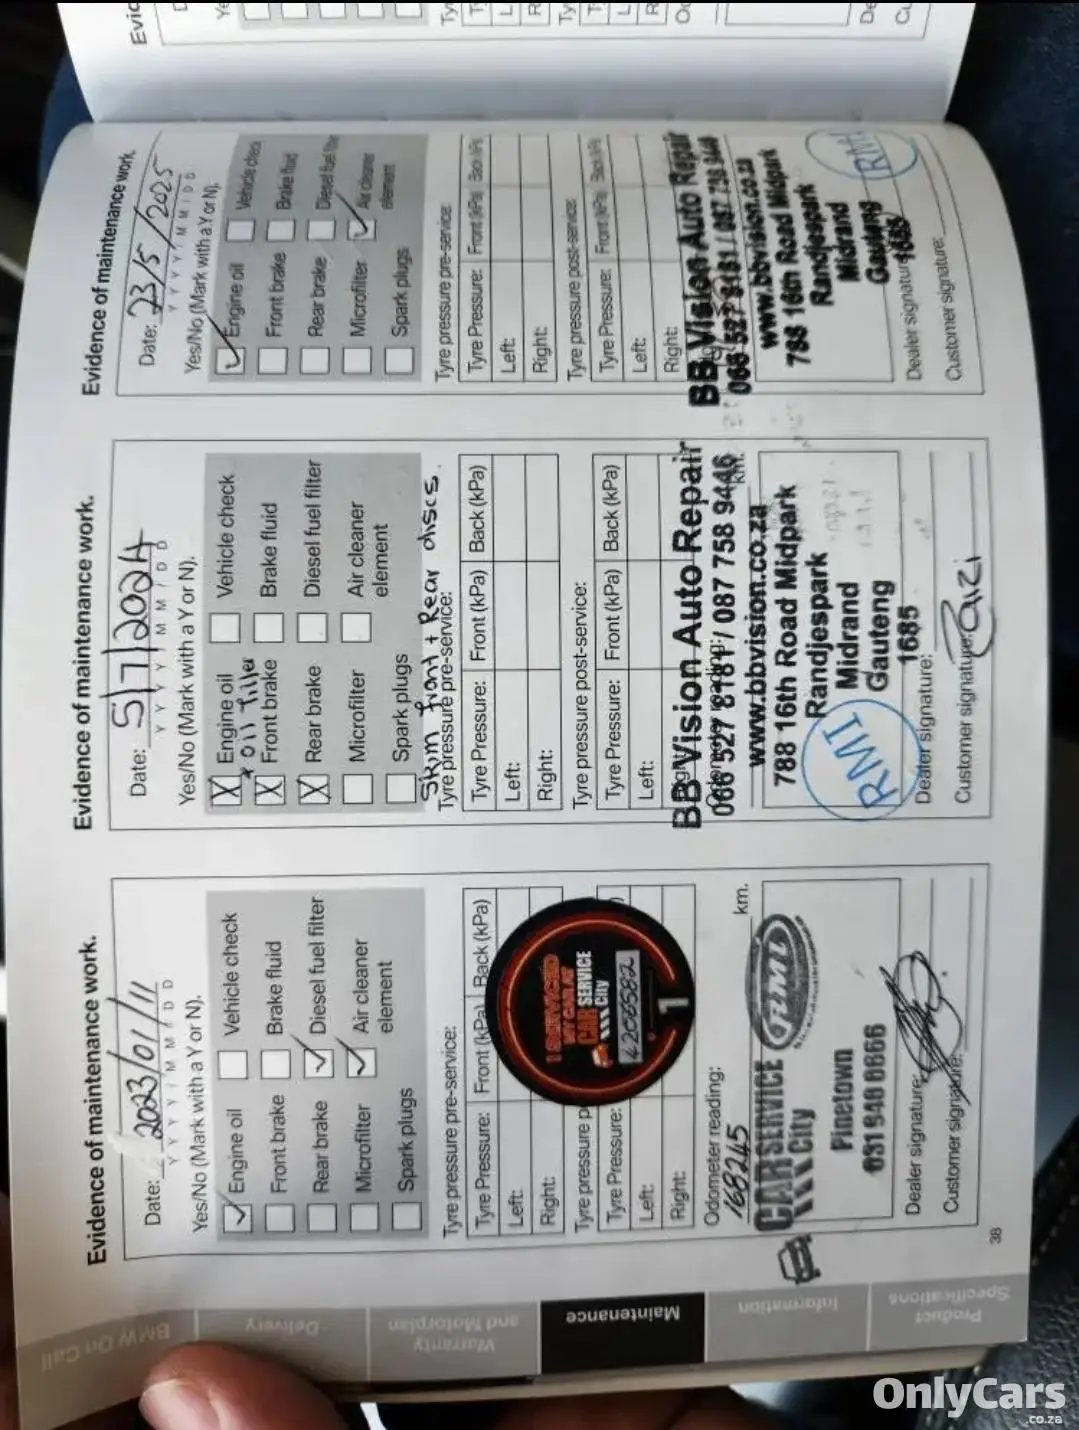 Evidence of maintenance work.
Date: 2023/01/11
Y Y Y Y / M M / D D
Yes/No (Mark with a Y or N).
Engine oil Vehicle check
Front brake Brake fluid
Rear brake Diesel fuel filter
Microfilter Air cleaner
element
Spark plugs
Tyre pressure pre-service:
Tyre Pressure: Front (kPa) Back (kPa)
Left:
Right:
Tyre p
Tyre Pressure:
Left:
Right:
I SERVICED
MY CAR AT
CAR SERVICE
City
42006582
1
Odometer reading:
168245 km.
CARSERVICE
City
Pinetown
031 940 0666
Dealer signature:
Customer signature:
38
Evidence of maintenance work.
Date: 5/7/2024
Y Y Y Y / M M / D D
Yes/No (Mark with a Y or N).
X Engine oil Vehicle check
+ oil filter
X Front brake Brake fluid
X Rear brake Diesel fuel filter
Microfilter Air cleaner
element
Spark plugs
Skim front + Rear discs.
Tyre pressure pre-service:
Tyre Pressure: Front (kPa) Back (kPa)
Left:
Right:
Tyre pressure post-service:
Tyre Pressure: Front (kPa) Back (kPa)
Left:
BB Vision Auto Repair
066 527 8181 / 087 758 9446
km.
www.bbvision.co.za
788 16th Road Midpark
Randjespark
Midrand
Gauteng
1685
RMI
Dealer signature:
Customer signature:
Evidence of maintenance work.
Date: 23/5/2025
Y Y Y Y / M M / D D
Yes/No (Mark with a Y or N).
Engine oil Vehicle chec
Front brake Brake fluid
Rear brake Diesel fuel filter
Microfilter Air cleaner
element
Spark plugs
Tyre pressure pre-service:
Tyre Pressure: Front (kPa) Back (kPa)
Left:
Right:
Tyre pressure post-service:
Tyre Pressure: Front (kPa) Back (kPa)
Left:
Right:
BB Vision Auto Repair
www.bbvision.co.za
788 16th Road Midpark
Randjespark
Midrand
Gauteng
1685
RMI
Dealer signature:
Customer signature:
BMW On Call
Delivery
Warranty
and Motorplan
Maintenance
Information
Product
Specifications
OnlyCars
.co.za